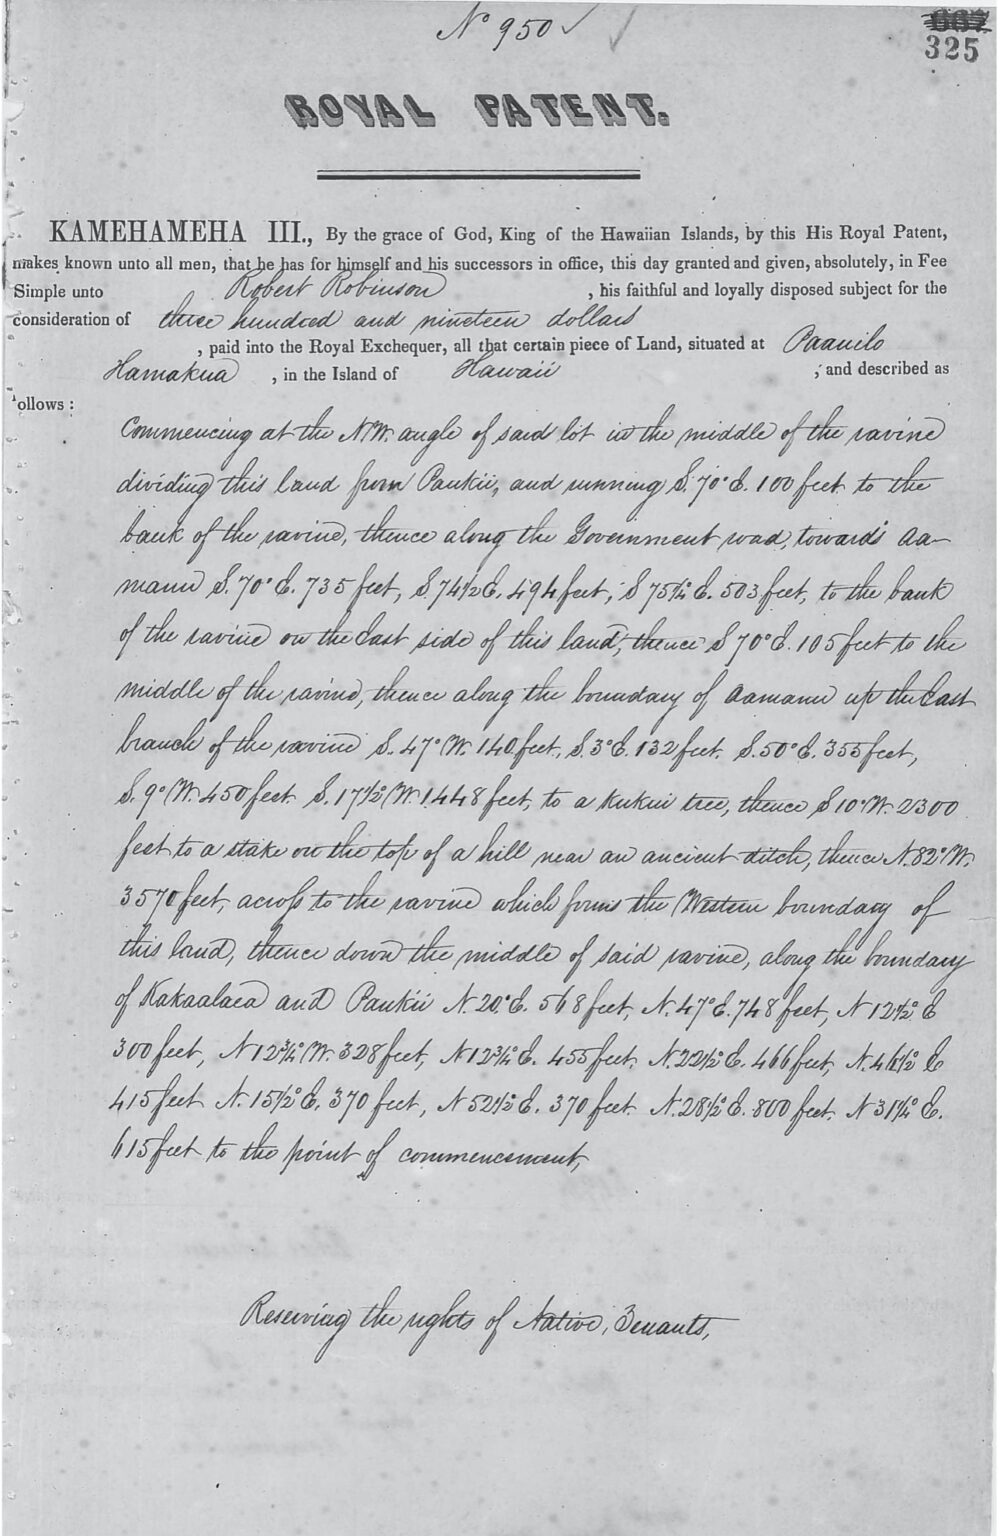 No 950
325
ROYAL PATENT.
KAMEHAMEHA III., By the grace of God, King of the Hawaiian Islands, by this His Royal Patent,
makes known unto all men, that he has for himself and his successors in office, this day granted and given, absolutely, in Fee
Simple unto Robert Robinson , his faithful and loyally disposed subject for the
consideration of three hundred and nineteen dollars
, paid into the Royal Exchequer, all that certain piece of Land, situated at Paauilo
Hamakua , in the Island of Hawaii ; and described as
follows :
Commencing at the N.W. angle of said lot in the middle of the ravine
dividing this land from Paukii, and running S. 70° E. 100 feet to the
bank of the ravine, thence along the Government road, towards Aa-
manu S. 70° E. 735 feet, S. 74½ E. 494 feet, S 75¼° E. 503 feet, to the bank
of the ravine on the East side of this land, thence S 70° E. 105 feet to the
middle of the ravine, thence along the boundary of Aamanu up the East
branch of the ravine S. 47° W. 140 feet, S. 3° E. 132 feet. S. 50° E. 355 feet,
S. 9° W. 450 feet S. 17½° W. 1448 feet, to a Kukui tree, thence S 10° W. 2300
feet to a stake on the top of a hill near an ancient ditch, thence N. 82° W.
3570 feet, across to the ravine which forms the Western boundary of
this land, thence down the middle of said ravine, along the boundary
of Kakaalaea and Paukii N. 20° E. 568 feet, N. 47° E. 748 feet, N 12½° E
300 feet, N 12¾° W. 328 feet, N 12¾° E. 455 feet. N. 22½° E. 466 feet, N. 46½° E
415 feet N. 15½° E. 370 feet, N 52½° E. 370 feet N. 28½° E. 800 feet. N 31¼° E.
615 feet to the point of commencement,
Reserving the rights of Native, Tenants,